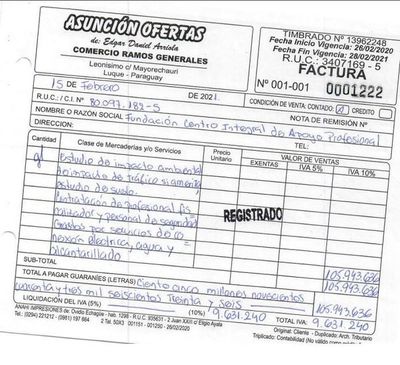 ASUNCIÓN OFERTAS
de: Edgar Daniel Arriola
COMERCIO RAMOS GENERALES
Leonismo c/ Mayorechauri
Luque - Paraguay
TIMBRADO Nº 13962248
Fecha Inicio Vigencia: 26/02/2020
Fecha Fin Vigencia: 28/02/2021
R.U.C.: 3407169 - 5
FACTURA
Nº 001-001 0001222
15 de Febrero de 2021.
CONDICIÓN DE VENTA: CONTADO CREDITO
R.U.C. / C.I. Nº 80.097.182-5
NOTA DE REMISIÓN Nº
NOMBRE O RAZÓN SOCIAL: Fundación Centro Integral de Apoyo Profesional
DIRECCION: TEL:
Cantidad Clase de Mercaderías y/o Servicios Precio Unitario VALOR DE VENTAS
EXENTAS IVA 5% IVA 10%
estudio de impacto ambiental
de impacto de tráfico
estudio de suelo.
Contratación de profesional fis
calizador y personal de seguridad
Gastos por servicios de co
nexión eléctrica, agua y
alcantarillado
REGISTRADO
SUB-TOTAL 105.943.636
TOTAL A PAGAR GUARANÍES (LETRAS) Ciento cinco millones novecientos
cuarenta y tres mil seiscientos treinta y seis 105.943.636
LIQUIDACIÓN DEL IVA (5%) (10%) 9.631.240 TOTAL IVA: 9.631.240
ANAHI IMPRESIONES de: Ovidio Echagüe - Nab. 1298 - R.U.C. 935631 - 2 Juan XXIII c/ Eligio Ayala
Tel.: (0294) 221212 - (0981) 197 664 2 Tal. 50X3 001151 - 001250 - 26/02/2020
Original: Cliente - Duplicado: Arch. Tributario
Triplicado: Contabilidad (No válido